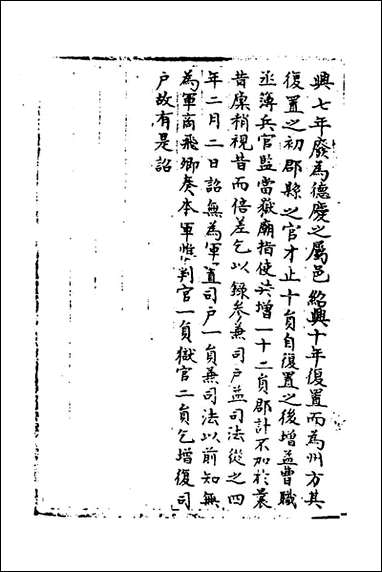 興七年廢為德慶之屬邑紹興十年復置而為州方其
復置之初郡縣之官才止十員自復置之後增益曹職
丞簿兵官監當嶽廟指使共增一十二員郡計不加於曩
昔廩稍視昔而倍差乞以錄參兼司戶益司法從之四
年二月二日詔無為軍置司戶一員兼司法以前知無
為軍商飛卿奏本軍惟判官一員獄官二員乞增復司
户故有是詔